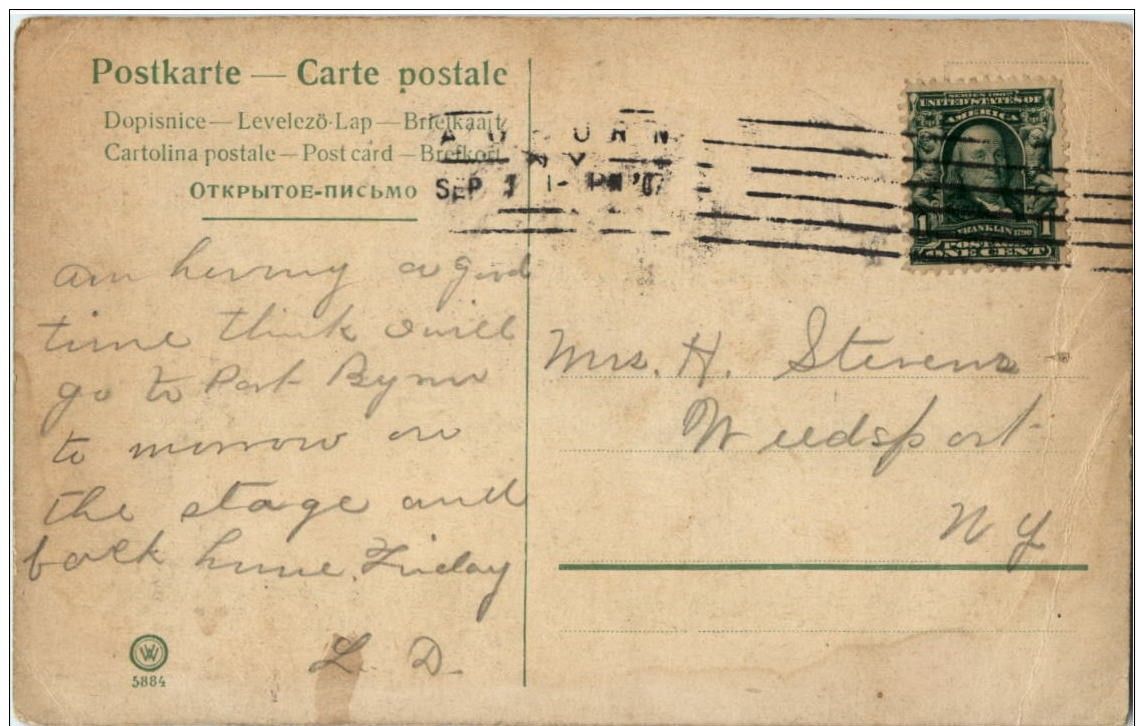 Postkarte — Carte postale
Dopisnice — Levelező-Lap — Briefkaart
Cartolina postale — Post card — Brefkort
ОТКРЫТОЕ-ПИСЬМО
AUBURN
N.Y.
SEP 1-PM '07
SERIES 1902
UNITED STATES OF
AMERICA
1 FRANKLIN 1790 1
POSTAGE
ONE CENT
am having a good
time think I will
go to Port Byron
to morrow on
the stage and
back home Friday
L. D.
Mrs. H. Stevens
Weedsport
N Y
W
5884